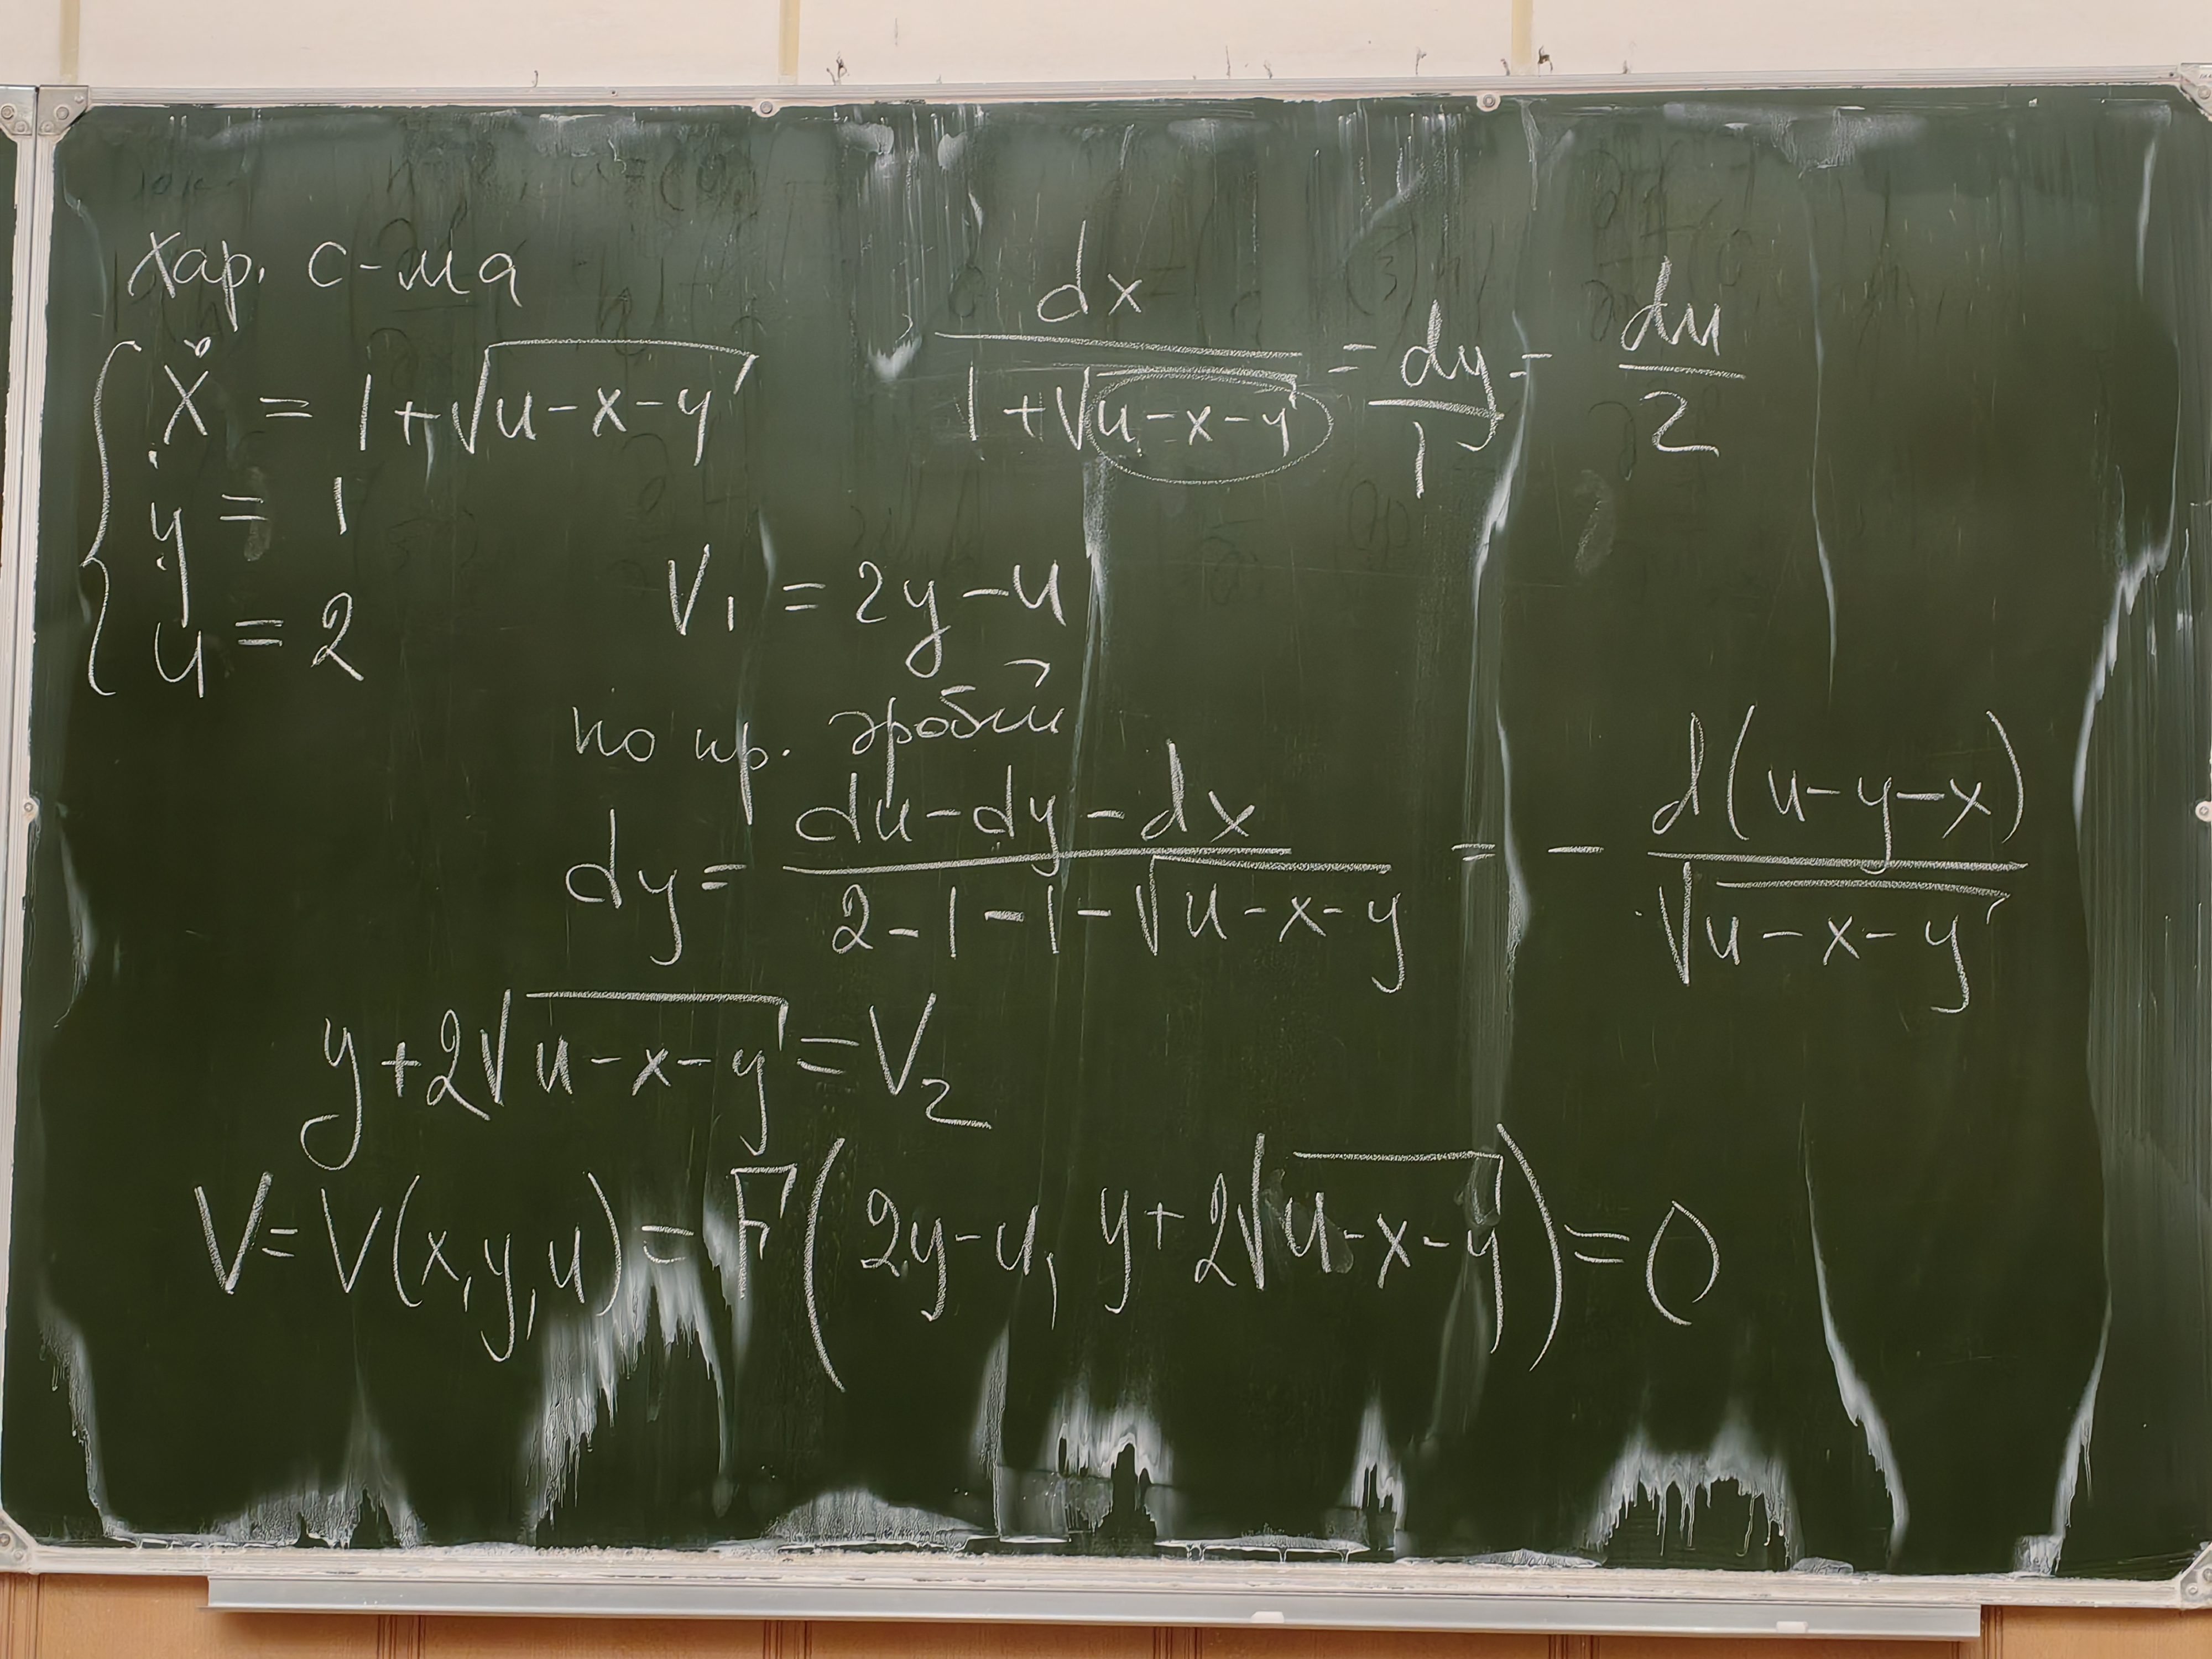 Хар. с-ма
ẋ = 1+√(u-x-y)
ẏ = 1
u̇ = 2
dx/(1+√(u-x-y)) = dy/1 = du/2
V₁ = 2y-u
по пр. дробей
dy = (du-dy-dx)/(2-1-1-√(u-x-y)) = - d(u-y-x)/√(u-x-y)
y+2√(u-x-y) = V₂
V = V(x,y,u) = F(2y-u, y+2√(u-x-y)) = 0